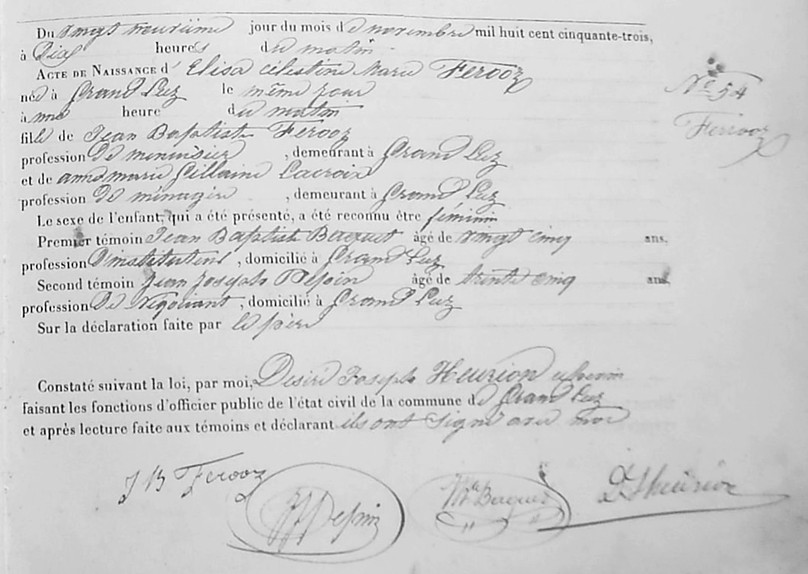 Du vingt neuvième jour du mois de novembre mil huit cent cinquante-trois,
à Dix heures du matin
ACTE DE NAISSANCE d' Elisa célestine Marie Ferooz
née à Grand Lez le même jour
à une heure du matin
fille de Jean Baptiste Ferooz
profession de menuisier, demeurant à Grand Lez
et de anne marie Gillaine Lacroix
profession de ménagère, demeurant à Grand Lez
Le sexe de l'enfant, qui a été présenté, a été reconnu être féminin
Premier témoin Jean Baptiste Baquet âgé de vingt cinq ans.
profession D'instituteur, domicilié à Grand Lez
Second témoin Jean Joseph âgé de trente cinq ans
profession de Négociant, domicilié à Grand Lez
Sur la déclaration faite par le père
Constaté suivant la loi, par moi, Desiré Joseph Heurion échevin
faisant les fonctions d'officier public de l'état civil de la commune de Grand Lez
et après lecture faite aux témoins et déclarant ils ont signé avec moi
N° 54
Ferooz
J B Ferooz